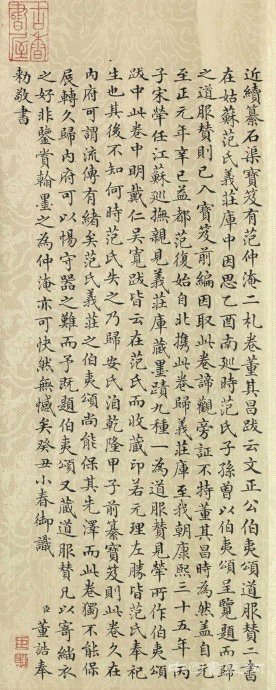 近續纂石渠寶笈有范仲淹二札卷董其昌跋云文正公伯夷頌道服贊二書
在姑蘇范氏義莊庫中因思乙酉南巡時范氏子孫曾以伯夷頌呈覽題而歸
之道服贊則已入寶笈前編因取此卷諦觀旁証不特董其昌時為然蓋自元
至正元年辛巳益都范復始自北攜此卷歸義莊庫至我朝康熙三十五年丙
子宋犖任江蘇巡撫親見義莊庫蔵墨蹟九種一為道服贊見犖所作伯夷頌
跋中此卷中明戴仁吳寬跋皆云在范氏而收蔵印若元理左勝皆范氏奉祀
生也其後不知何時范氏失之乃歸安氏洎乾隆甲子前纂寶笈則此卷久在
內府可謂流傳有緒矣范氏義莊之伯夷頌尚能保其先澤而此卷獨不能保
展轉久歸內府可以惕守器之難而予既題伯夷頌又蔵道服贊凡以寄緇衣
之好非鑒賞翰墨之為仲淹亦可快然無憾矣癸丑小春御識
臣董誥奉
勅敬書
古香
書屋